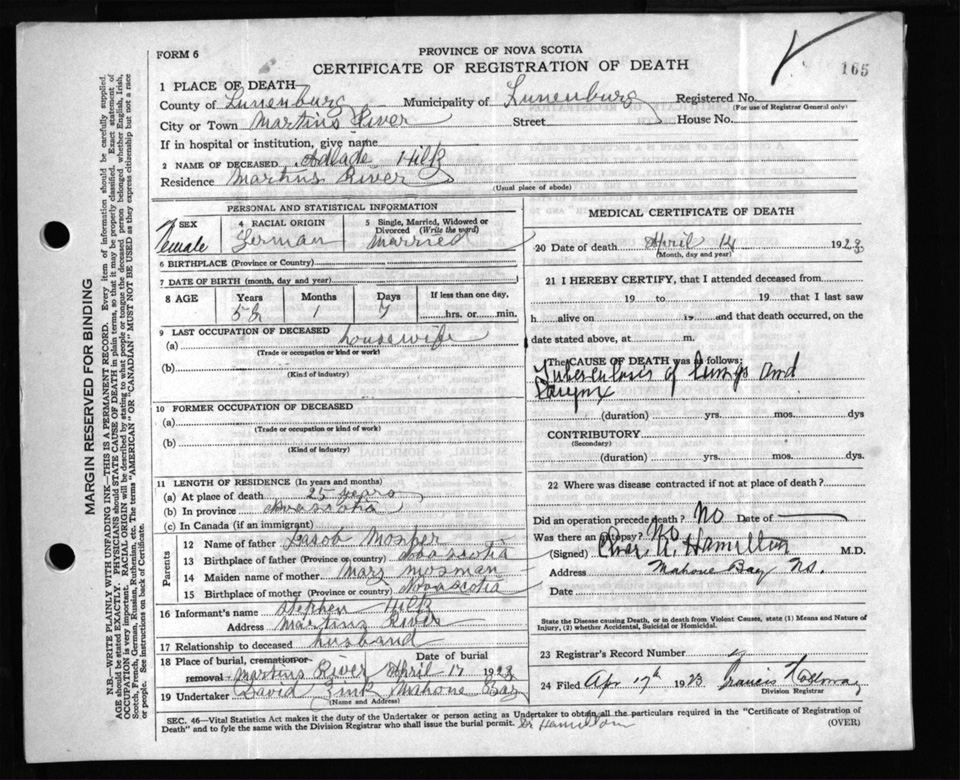 FORM 6
PROVINCE OF NOVA SCOTIA
CERTIFICATE OF REGISTRATION OF DEATH
165
1 PLACE OF DEATH
County of Lunenburg Municipality of Lunenburg Registered No.
(For use of Registrar General only)
City or Town Martins River Street House No.
If in hospital or institution, give name
2 NAME OF DECEASED Adlade Hilk
Residence Martins River
(Usual place of abode)
PERSONAL AND STATISTICAL INFORMATION
SEX Female
4 RACIAL ORIGIN German
5 Single, Married, Widowed or Divorced (Write the word) Married
6 BIRTHPLACE (Province or Country)
7 DATE OF BIRTH (month, day and year)
8 AGE Years Months Days If less than one day,
1 7 hrs. or min.
9 LAST OCCUPATION OF DECEASED
(a) housewife
(Trade or occupation or kind or work)
(b)
(Kind of industry)
10 FORMER OCCUPATION OF DECEASED
(a)
(Trade or occupation or kind of work)
(b)
(Kind of industry)
11 LENGTH OF RESIDENCE (In years and months)
(a) At place of death 25 years
(b) In province Nova scotia
(c) In Canada (if an immigrant)
Parents
12 Name of father Jacob Mosher
13 Birthplace of father (Province or country) Nova scotia
14 Maiden name of mother Mary mosman
15 Birthplace of mother (Province or country) Nova scotia
16 Informant's name Stephen Hilk
Address Martins River
17 Relationship to deceased husband
18 Place of burial, cremation or removal Martins River Date of burial April 17 1923
19 Undertaker David Zink Mahone Bay
(Name and Address)
MEDICAL CERTIFICATE OF DEATH
20 Date of death April 14 1923
(Month, day and year)
21 I HEREBY CERTIFY, that I attended deceased from
19 to 19 that I last saw
h alive on 19 and that death occurred, on the
date stated above, at m.
The CAUSE OF DEATH was as follows:
Tuberculosis of lungs and
Larynx
(duration) yrs. mos. dys
CONTRIBUTORY
(Secondary)
(duration) yrs. mos. dys.
22 Where was disease contracted if not at place of death?
Did an operation precede death? No Date of
Was there an autopsy? No
(Signed) Chas. A. Hamilton M.D.
Address Mahone Bay N.S.
Date
State the Disease causing Death, or in death from Violent Causes, state (1) Means and Nature of
Injury, (2) whether Accidental, Suicidal or Homicidal.
23 Registrar's Record Number
24 Filed Apr 17th 1923 Francis Holloway
Division Registrar
SEC. 46—Vital Statistics Act makes it the duty of the Undertaker or person acting as Undertaker to obtain all the particulars required in the "Certificate of Registration of
Death" and to fyle the same with the Division Registrar who shall issue the burial permit. Dr Hamilton (OVER)
MARGIN RESERVED FOR BINDING
N.B.—WRITE PLAINLY WITH UNFADING INK—THIS IS A PERMANENT RECORD. Every item of information should be carefully supplied.
AGE should be stated EXACTLY. PHYSICIANS should STATE CAUSE OF DEATH in plain terms, so that it may be properly classified. Exact statement of
OCCUPATION is very important. RACIAL ORIGIN will be described by stating to what people or tongue the deceased person belonged, whether English, Irish,
Scotch, French, German, Russian, Ruthenian, etc. The terms "AMERICAN" or "CANADIAN" MUST NOT BE USED as they express citizenship but not a race
or people. See instructions on back of Certificate.